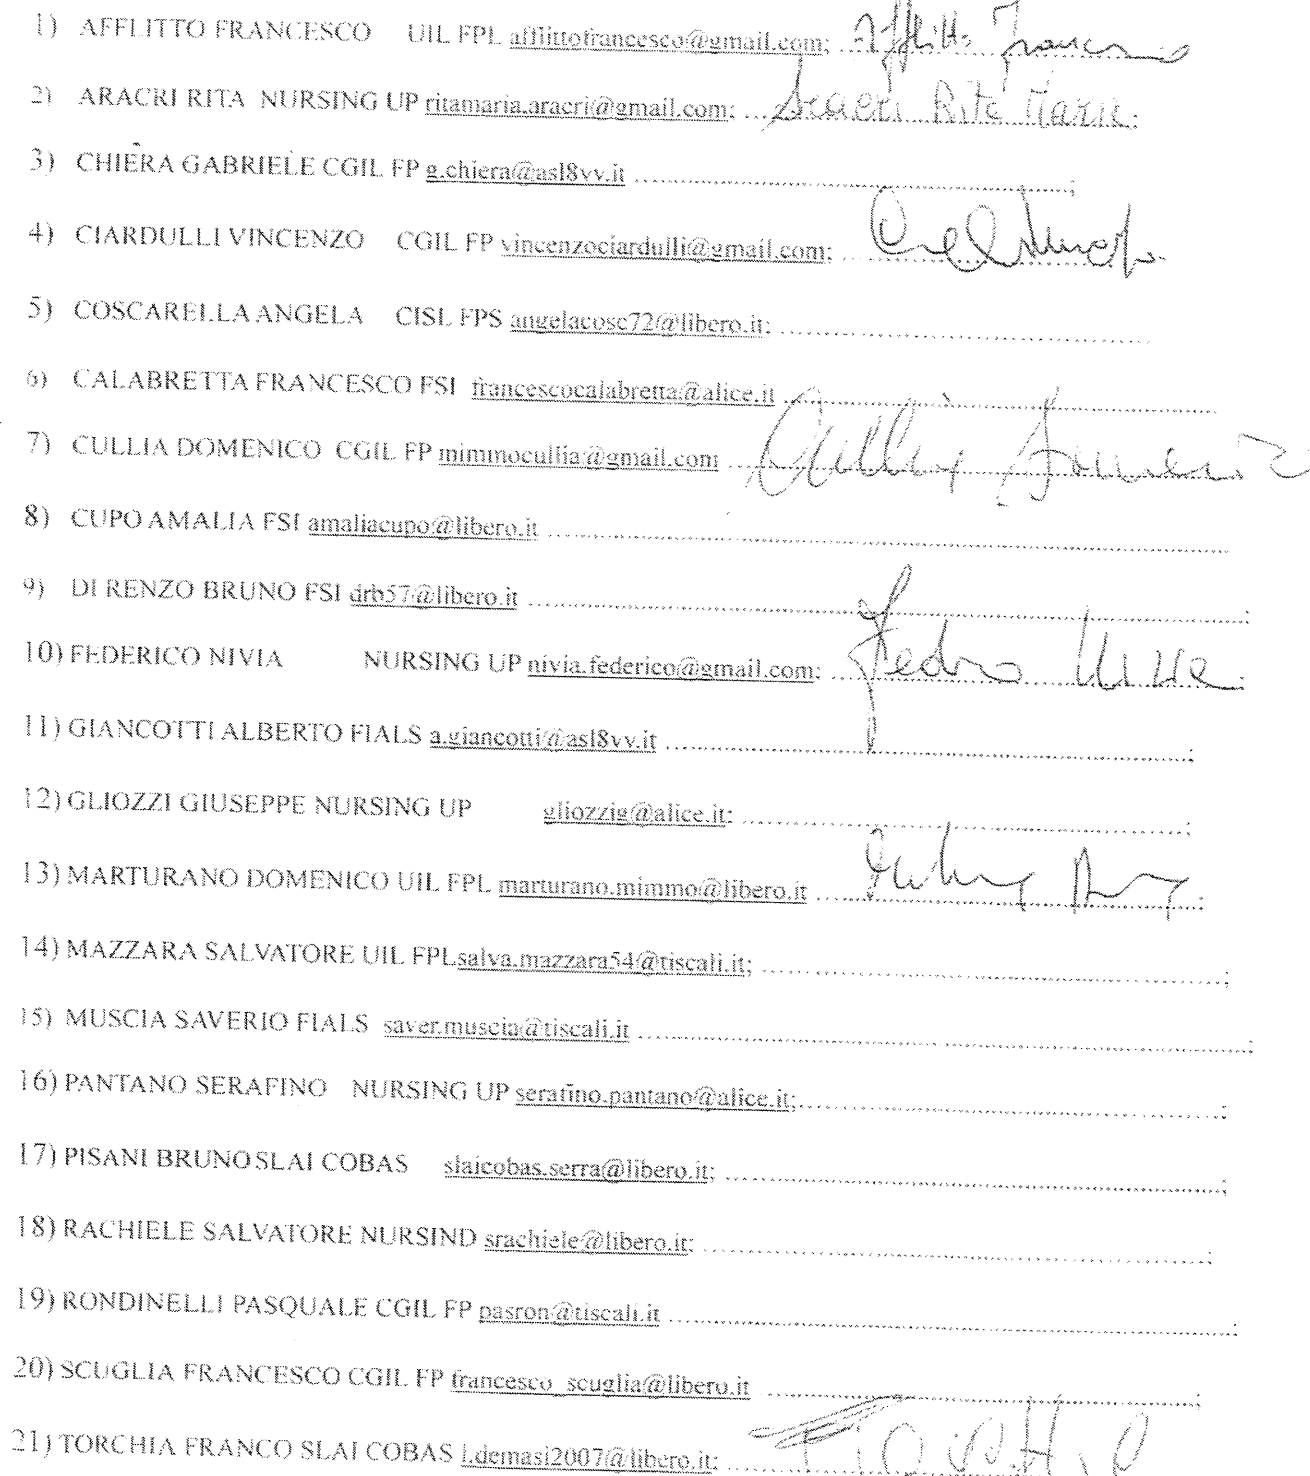 1) AFFLITTO FRANCESCO UIL FPL afflittofrancesco@gmail.com; Afflitto Francesco
2) ARACRI RITA NURSING UP ritamaria.aracri@gmail.com; Aracri Rita Maria
3) CHIERA GABRIELE CGIL FP g.chiera@asl8vv.it
4) CIARDULLI VINCENZO CGIL FP vincenzociardulli@gmail.com;
5) COSCARELLA ANGELA CISL FPS angelacosc72@libero.it;
6) CALABRETTA FRANCESCO FSI francescocalabretta@alice.it
7) CULLIA DOMENICO CGIL FP mimmocullia@gmail.com Cullia Domenico
8) CUPO AMALIA FSI amaliacupo@libero.it
9) DI RENZO BRUNO FSI drb57@libero.it
10) FEDERICO NIVIA NURSING UP nivia.federico@gmail.com;
11) GIANCOTTI ALBERTO FIALS a.giancotti@asl8vv.it
12) GLIOZZI GIUSEPPE NURSING UP gliozzig@alice.it;
13) MARTURANO DOMENICO UIL FPL marturano.mimmo@libero.it
14) MAZZARA SALVATORE UIL FPL salva.mazzara54@tiscali.it;
15) MUSCIA SAVERIO FIALS saver.muscia@tiscali.it
16) PANTANO SERAFINO NURSING UP serafino.pantano@alice.it;
17) PISANI BRUNO SLAI COBAS slaicobas.serra@libero.it;
18) RACHIELE SALVATORE NURSIND srachiele@libero.it;
19) RONDINELLI PASQUALE CGIL FP pasron@tiscali.it
20) SCUGLIA FRANCESCO CGIL FP francesco_scuglia@libero.it
21) TORCHIA FRANCO SLAI COBAS l.demasi2007@libero.it;